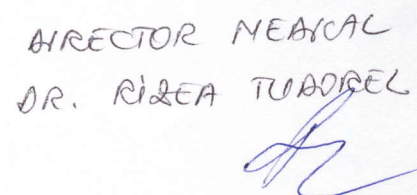 DIRECTOR MEDICAL
DR. RIZEA TUDOREL